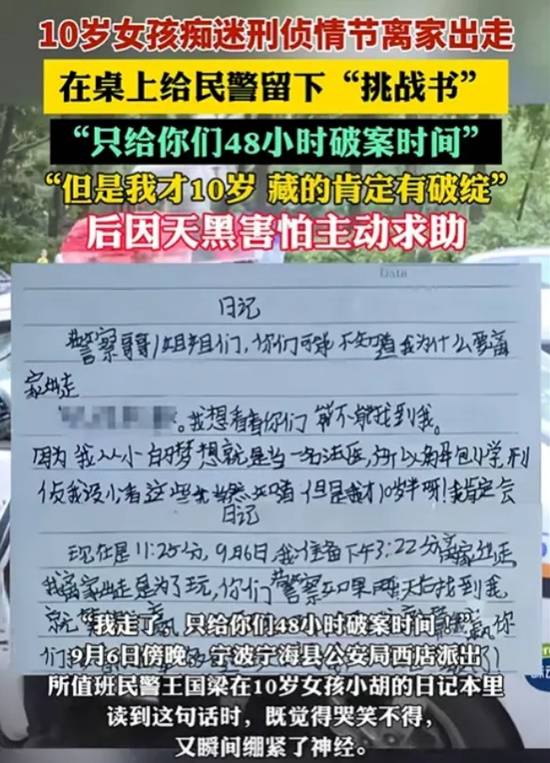 10岁女孩痴迷刑侦情节离家出走
在桌上给民警留下“挑战书”
“只给你们48小时破案时间”
“但是我才10岁 藏的肯定有破绽”
后因天黑害怕主动求助
Data
日记
警察哥哥/姐姐们，你们可能不知道我为什么要离
家出走
。我想看看你们能不能找到我。
因为我从小的梦想就是当一名法医，所以
侦我没少看这些 当然知道 但是我才10岁半呀!我肯定会
日记
现在是11:25分，9月6日，我准备下午3:22分离家出走
我离家出走是为了玩，你们警察如果两天后找到我
就
我走了，只给你们48小时破案时间！
9月6日傍晚，宁波宁海县公安局西店派出
所值班民警王国梁在10岁女孩小胡的日记本里
读到这句话时，既觉得哭笑不得，
又瞬间绷紧了神经。